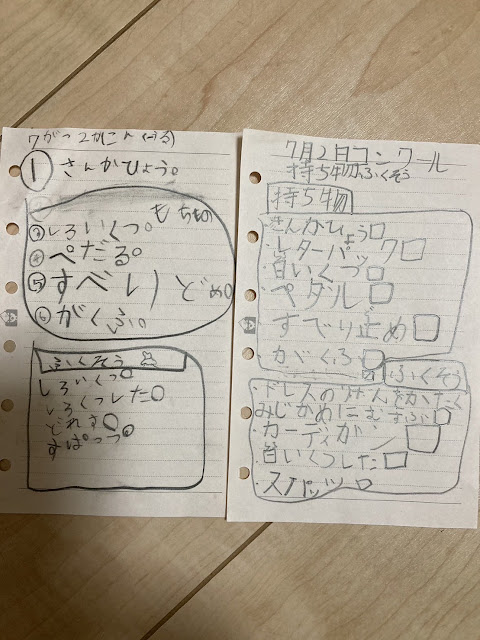 7がつ2か
① さんかひょう。
もちもの
③しろいくつ。
④ぺだる。
⑤すべりどめ。
⑥がくふ。
ふくそう
しろいくつ
しろくつした
どれす
すぱっつ
7月2日コンクール
持ち物、ふくそう
持ち物
・さんかひょう
・レターパック
・白いくつ
・ペダル
・すべり止め
・がくふ
ふくそう
・ドレスの
みじかめにむすぶ
・カーディガン
・白いくつした
・スパッツ